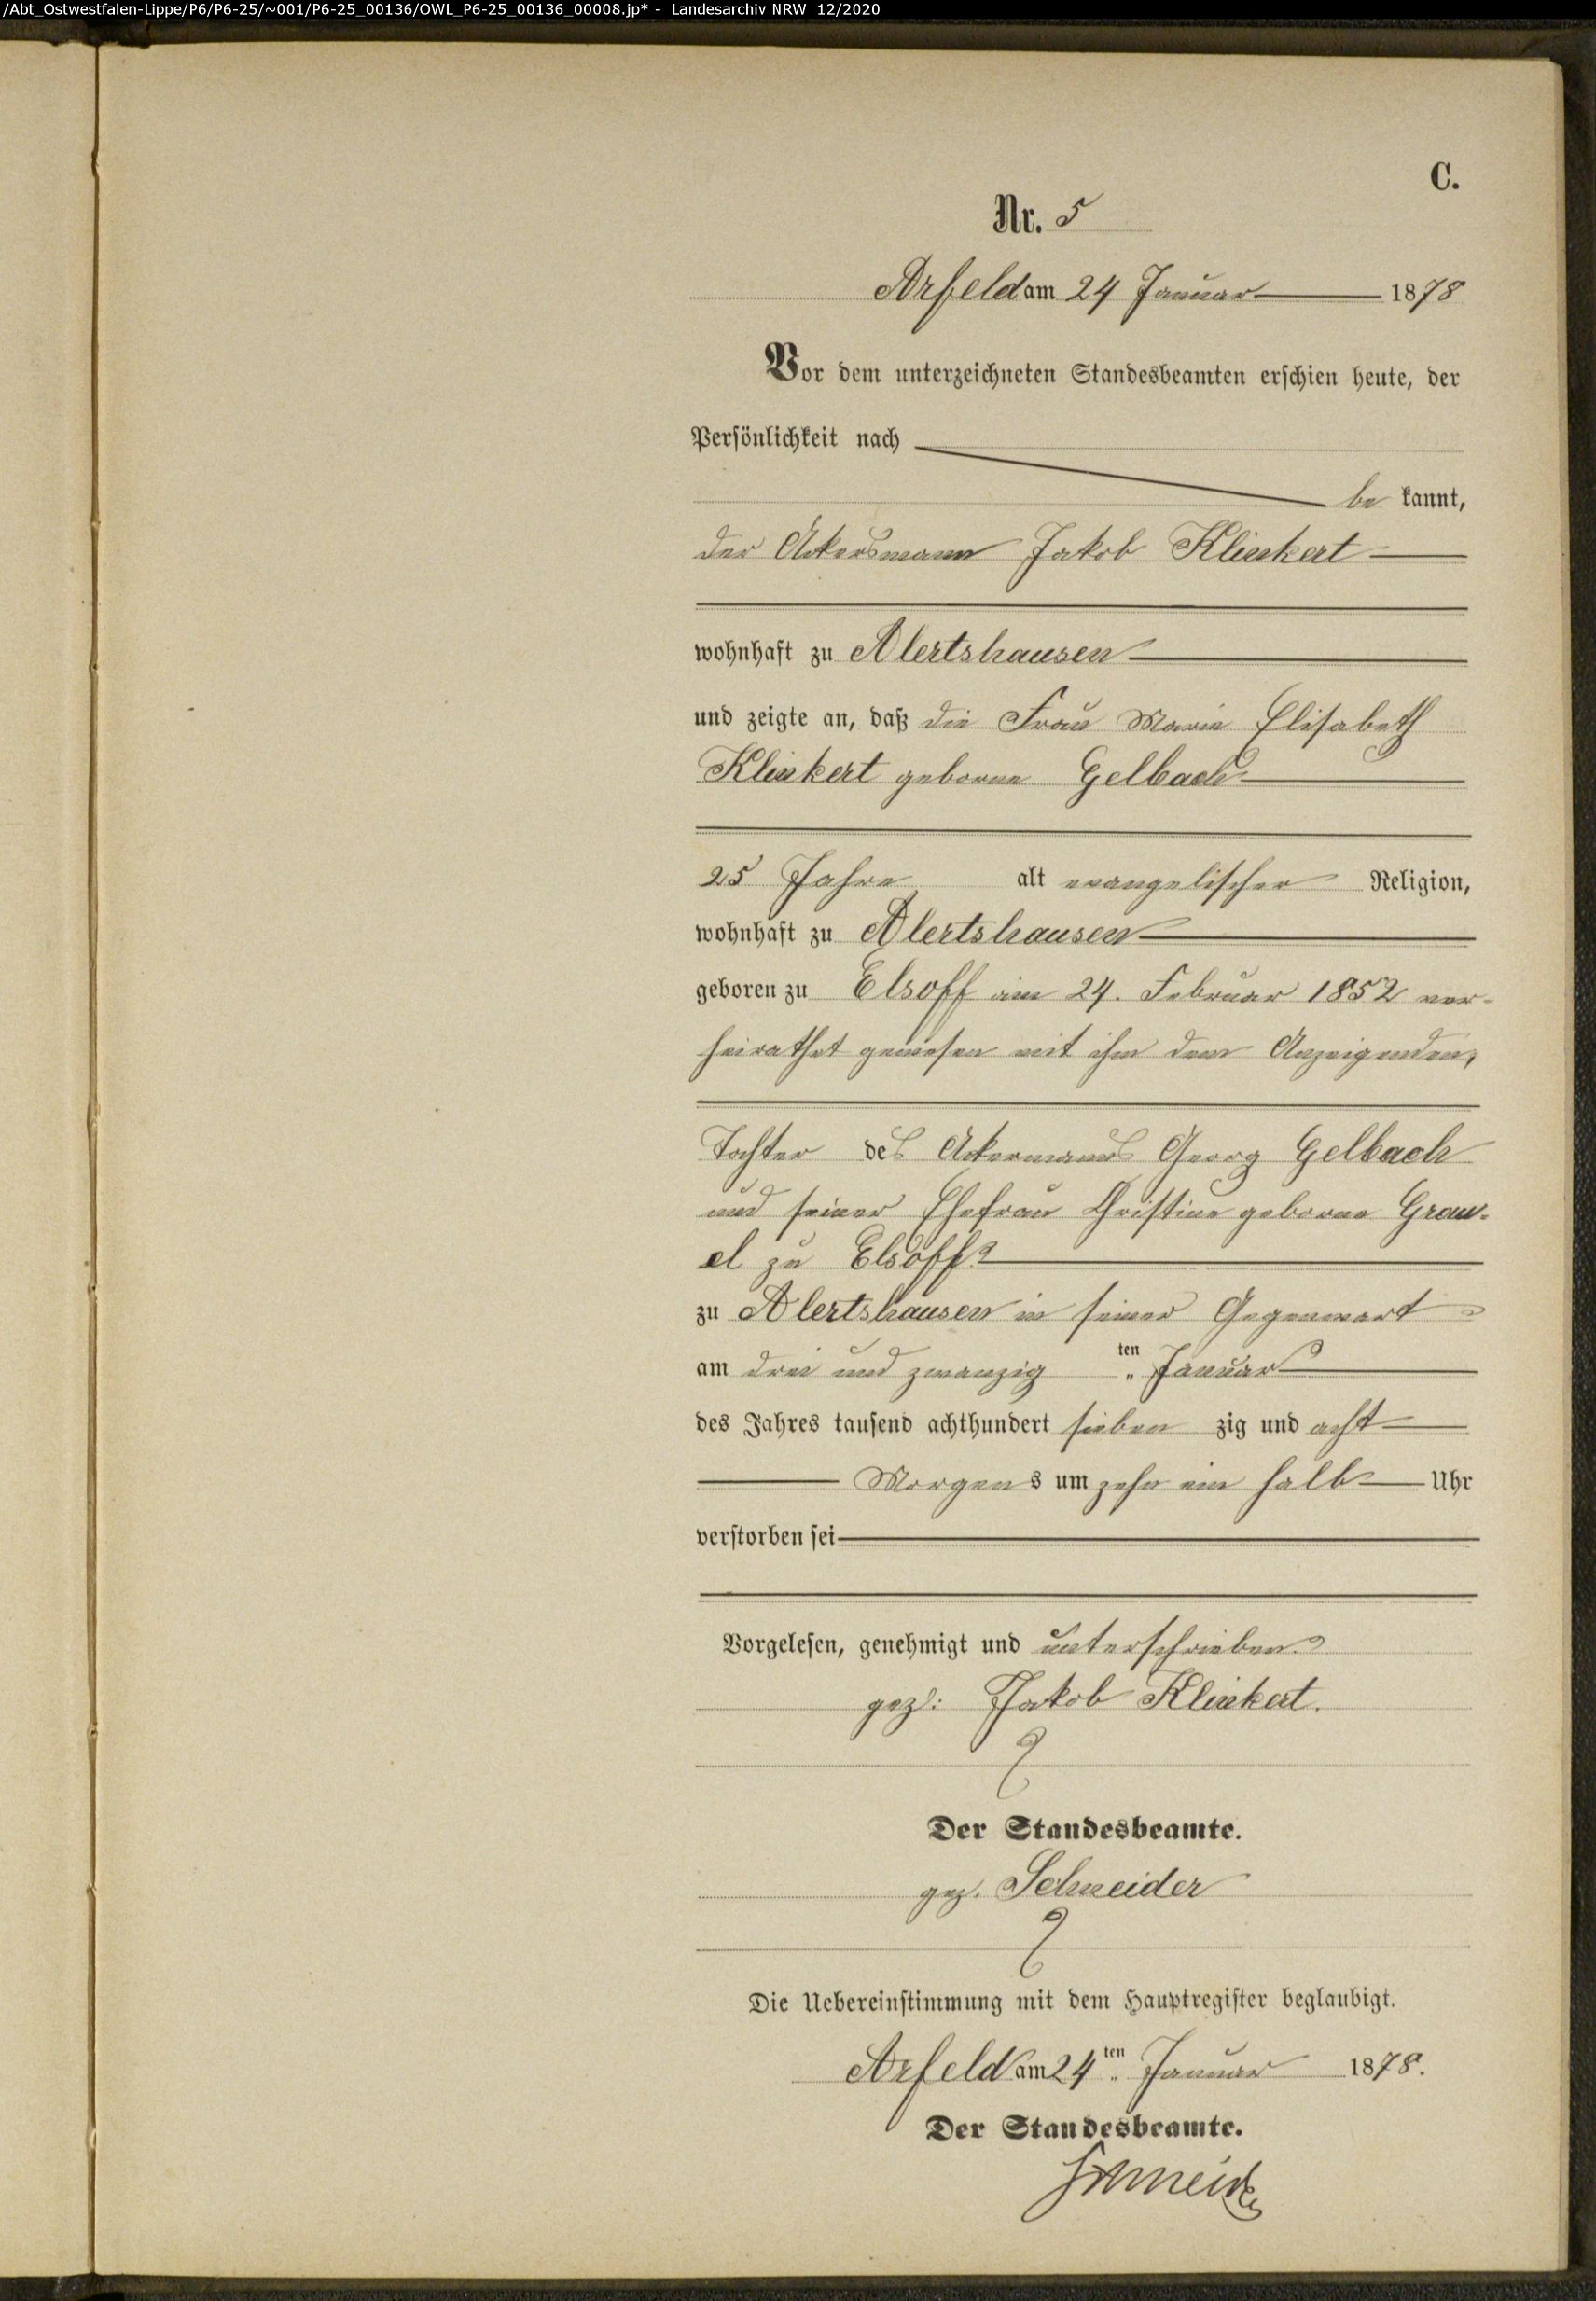 /Abt_Ostwestfalen-Lippe/P6/P6-25/~001/P6-25_00136/OWL_P6-25_00136_00008.jp* - Landesarchiv NRW 12/2020
C.
Nr. 5
Arfeld am 24 Januar 1878
Vor dem unterzeichneten Standesbeamten erschien heute, der
Persönlichkeit nach
be kannt,
der Ackersmann Jakob Klinkert
wohnhaft zu Alertshausen
und zeigte an, daß die Frau Marie Elisabeth
Klinkert geborne Gelbach
25 Jahre alt evangelischer Religion,
wohnhaft zu Alertshausen
geboren zu Elsoff am 24. Februar 1852 ver-
heirathet gewesen mit ihm dem Anzeigenden,
Tochter des Ackermanns Georg Gelbach
und seiner Ehefrau Christine geborne Grau-
el zu Elsoff
zu Alertshausen in seiner Gegenwart
am drei und zwanzig ten Januar
des Jahres tausend achthundert sieben zig und acht
Morgens um zehn ein halb Uhr
verstorben sei
Vorgelesen, genehmigt und unterschrieben
gez: Jakob Klinkert.
Der Standesbeamte.
gez. Schneider
Die Uebereinstimmung mit dem Hauptregister beglaubigt.
Arfeld am 24ten Januar 1878.
Der Standesbeamte.
Schneider